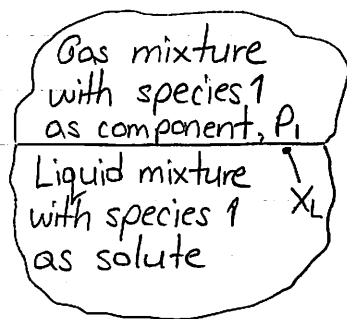 Gas mixture
with species 1
as component, P₁
Liquid mixture
with species 1
as solute
X_L